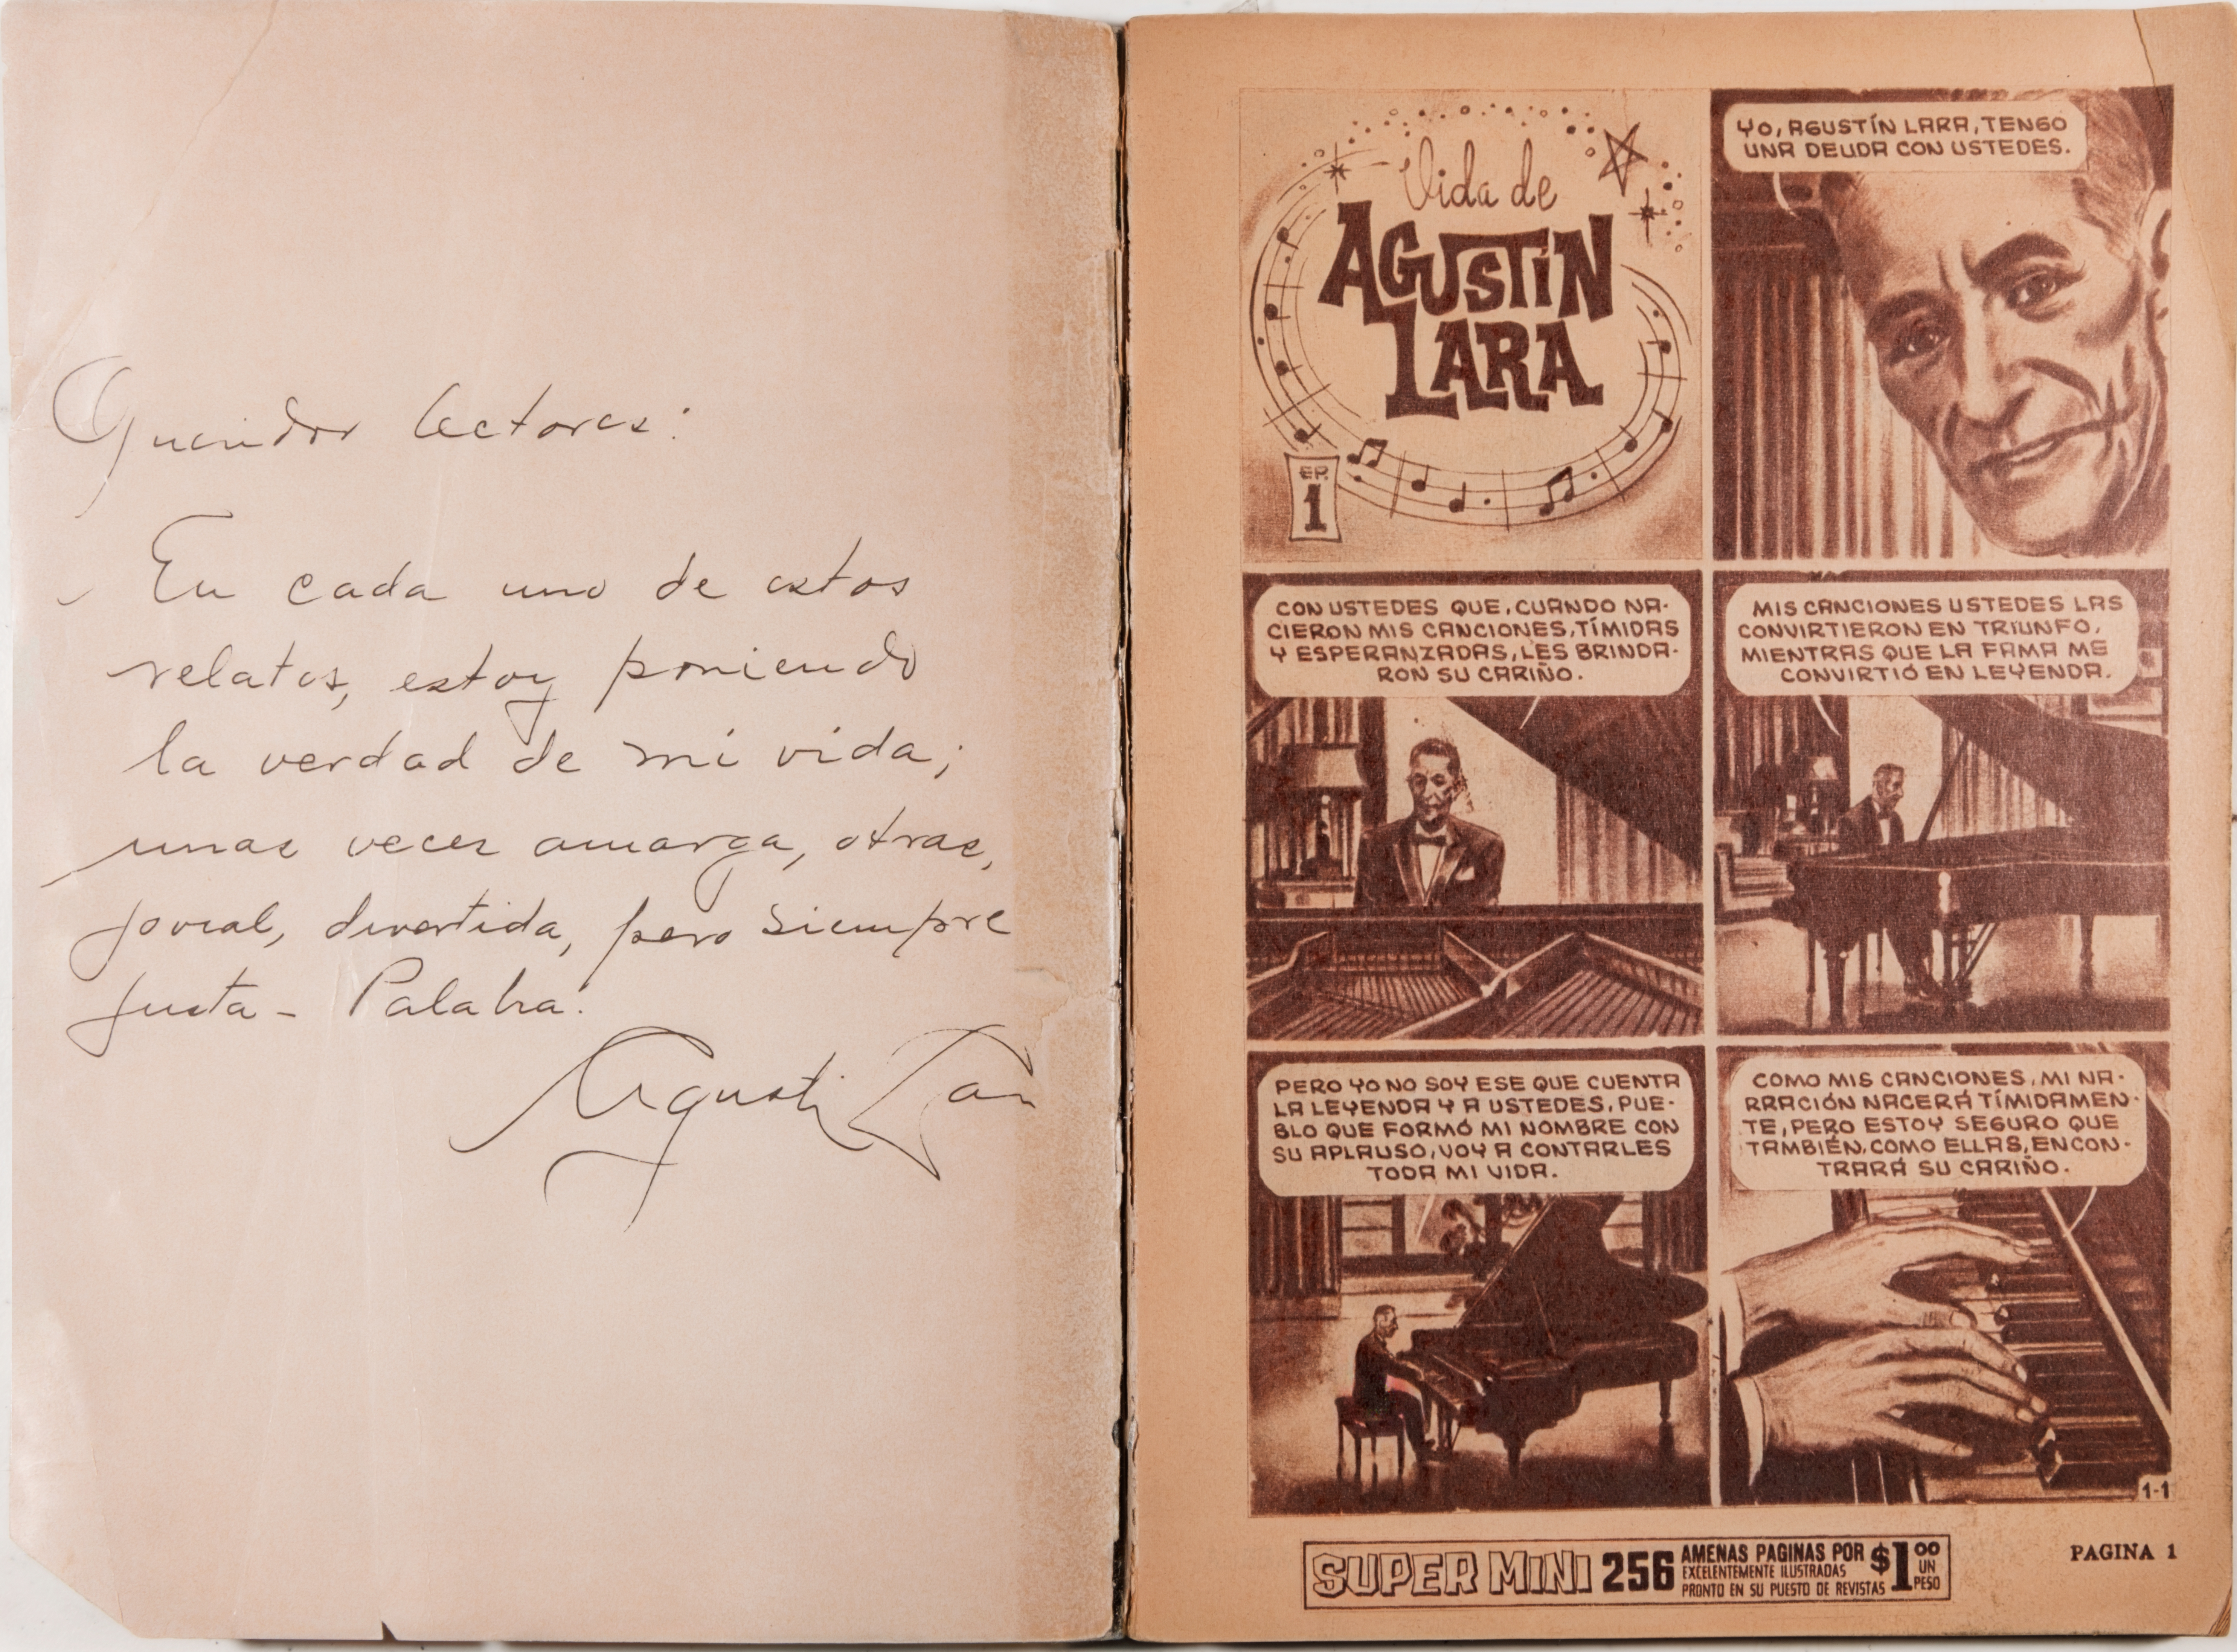 Queridos lectores:
En cada uno de estos
relatos, estoy poniendo
la verdad de mi vida;
unas veces amarga, otras,
jovial, divertida, pero siempre
justa - Palabra!
Agustín Lara
Vida de
AGUSTÍN
LARA
EP.
1
YO, AGUSTÍN LARA, TENGO
UNA DEUDA CON USTEDES.
CON USTEDES QUE, CUANDO NA-
CIERON MIS CANCIONES, TÍMIDAS
Y ESPERANZADAS, LES BRINDA-
RON SU CARIÑO.
MIS CANCIONES USTEDES LAS
CONVIRTIERON EN TRIUNFO,
MIENTRAS QUE LA FAMA ME
CONVIRTIÓ EN LEYENDA.
PERO YO NO SOY ESE QUE CUENTA
LA LEYENDA Y A USTEDES, PUE-
BLO QUE FORMÓ MI NOMBRE CON
SU APLAUSO, VOY A CONTARLES
TODA MI VIDA.
COMO MIS CANCIONES, MI NA-
RRACIÓN NACERÁ TÍMIDAMEN-
TE, PERO ESTOY SEGURO QUE
TAMBIÉN, COMO ELLAS, ENCON-
TRARÁ SU CARIÑO.
1-1
SUPER MINI 256 AMENAS PAGINAS POR $1.00 UN PESO
EXCELENTEMENTE ILUSTRADAS
PRONTO EN SU PUESTO DE REVISTAS
PAGINA 1